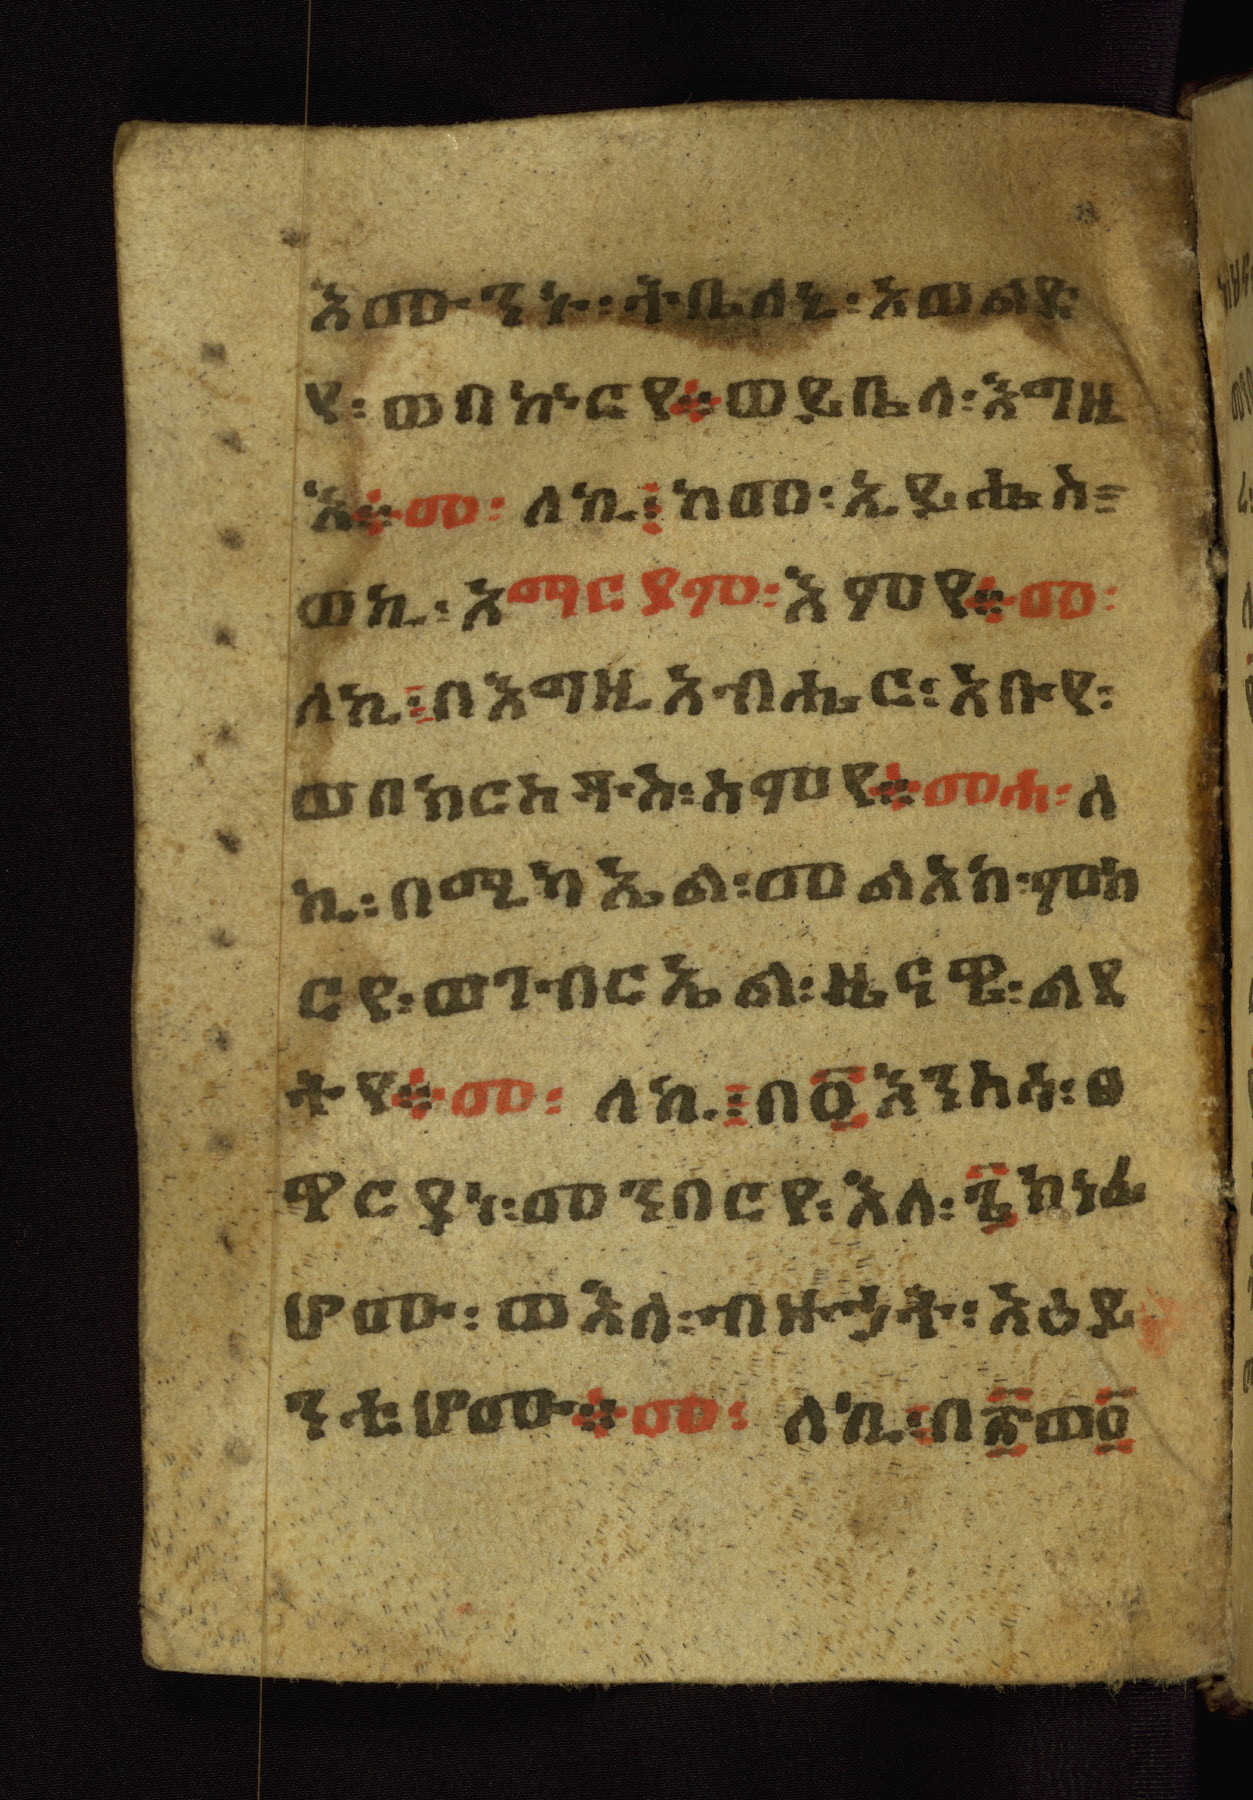 እሙንኑ፡ትቤለኒ፡እወልድ
የ፡ወበኵርየ።ወይቤላ፡እግዚ
እ።መ፡ ለኪ፡ከመ፡ኢይሔስ፡
ወኪ፡እማርያም፡እምየ።መ፡
ለኪ፡በእግዚአብሔር፡አቡየ፡
እምየ።መሐ፡ለ
ኪ፡በሚካኤል፡መልአከ፡ምክ
ርየ፡ወገብርኤል፡ዜናዊ፡ልደ
ትየ።መ፡ ለኪ፡በ፬እንስሳ፡ፀ
ዋርያነ፡መንበርየ፡እለ፡፮ክነፊ
ሆሙ፡ወእለ፡ብዙኃት፡አዕይ
ንቲሆሙ።መ፡ ለኪ፡በ፳ወ፬